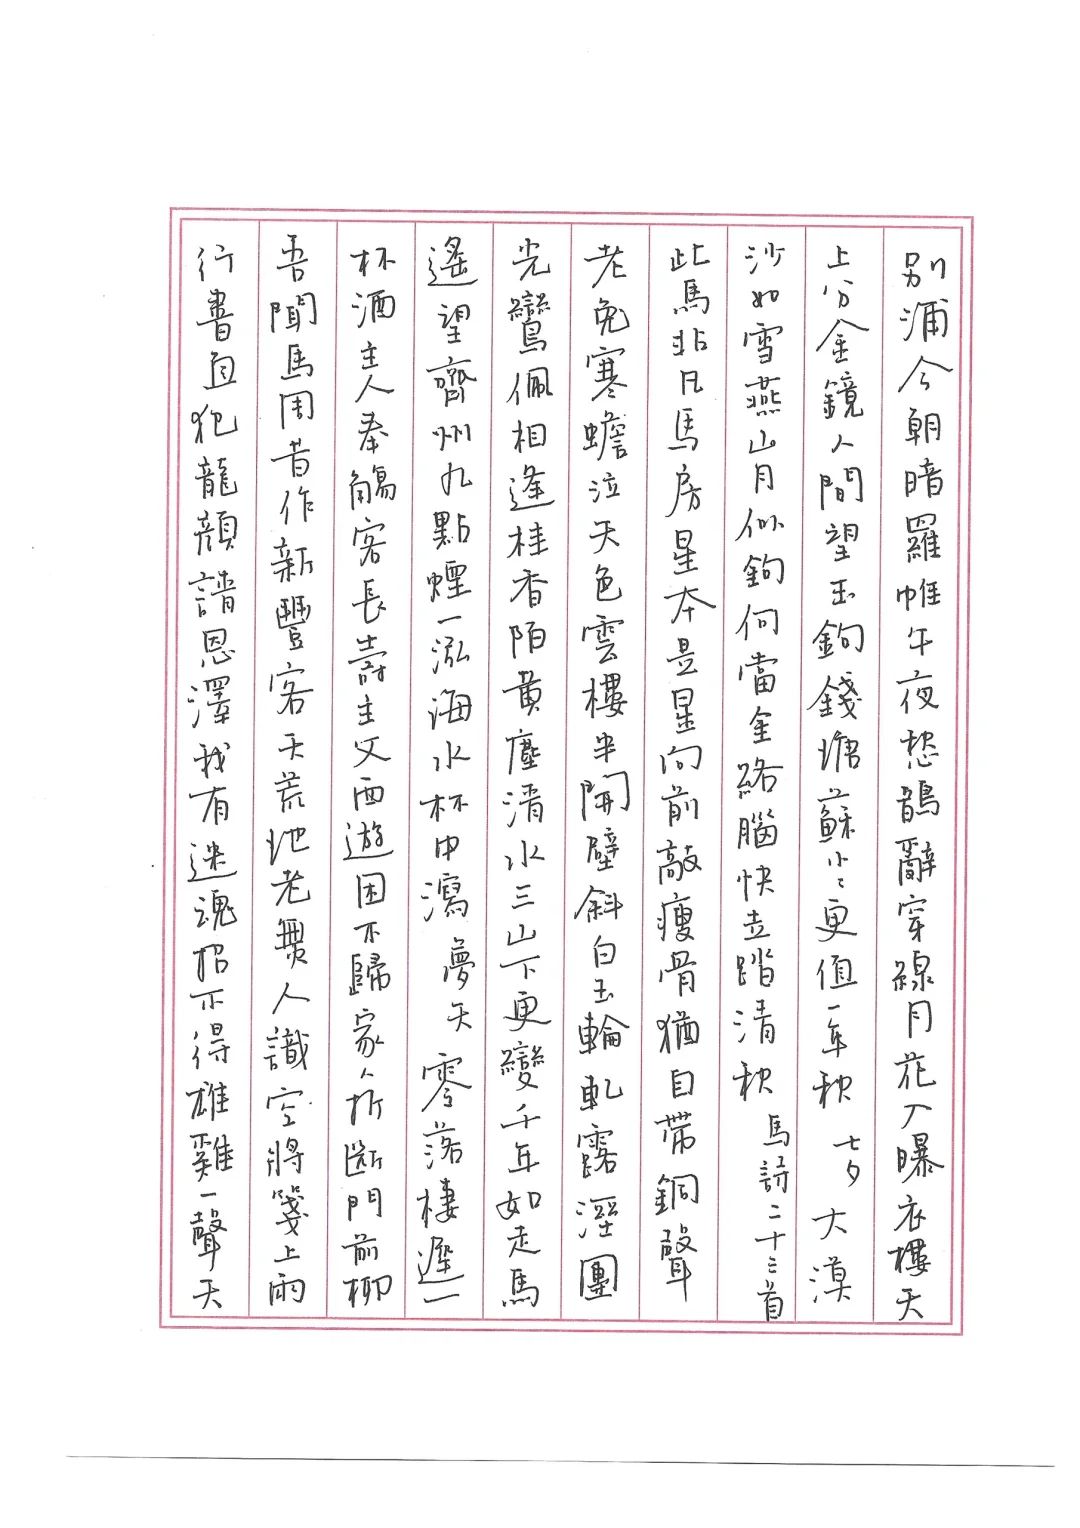 別浦今朝暗羅帷午夜愁鵲辭穿線月花入曝衣樓天
上分金鏡人間望玉鉤錢塘蘇小〻更值一年秋 七夕 大漠
沙如雪燕山月似鉤何當金絡腦快走踏清秋 馬詩二十三首
此馬非凡馬房星本是星向前敲瘦骨猶自帶銅聲
老兔寒蟾泣天色雲樓半開壁斜白玉輪軋露溼團
光鸞佩相逢桂香陌黃塵清水三山下更變千年如走馬
遙望齊州九點煙一泓海水杯中瀉 夢天 零落棲遲一
杯酒主人奉觴客長壽主父西遊困不歸家人折斷門前柳
吾聞馬周昔作新豐客天荒地老無人識空將箋上兩
行書直犯龍顏請恩澤我有迷魂招不得雄雞一聲天